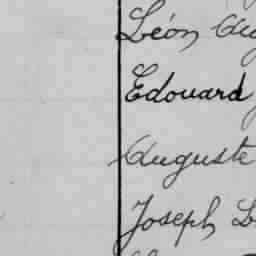 Léon
Edouard
Auguste
Joseph